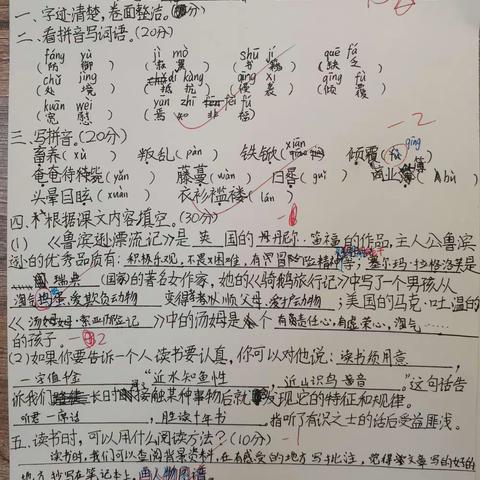 一、字迹清楚,卷面整洁。(5分)
二、看拼音写词语。(20分)
fáng yù jì mò shū jí quē fá
(防御) (寂寞) (书籍) (缺乏)
chǔ jìng dǐ kàng qīng xí qīng fù
(处境) (抵抗) (侵袭) (倾覆)
kuān wèi yān zhī fēi fú
(宽慰) (焉知非福)
三、写拼音。(20分) -2
畜养(xù) 叛乱(pàn) 铁锨(xiān) 倾覆(fù) qīng
奄奄待毙(yǎn) 藤蔓(wàn) 日晷(guǐ) 商业簿(bù)
头晕目眩(xuàn) 衣衫褴褛(lán)
四、根据课文内容填空。(30分)
(1) 《鲁滨逊漂流记》是英国的丹尼尔·笛福的作品,主人公鲁滨
逊的优秀品质有:积极乐观,不畏困难,有冒险精神等;塞尔玛·拉格洛芙是
瑞典(国家)的著名女作家,她的《骑鹅旅行记》中写了一个男孩从
淘气捣蛋,爱欺负动物变得孝顺父母,爱护动物;美国的马克·吐温的
《汤姆·索亚历险记》中的汤姆是个有责任心,有虚荣心,淘气……
的孩子。 -2
(2)如果你要告诉一个人读书要认真,你可以对他说:读书须用意,
一字值千金。"近水知鱼性,近山识鸟音。"这句话告
诉我们长时间接触某种事物后就会发现它的特征和规律。
听君一席话,胜读十年书。指听了有识之士的话后受益匪浅。
五、读书时,可以用什么阅读方法?(10分) -1
读书时,我们可以查阅背景资料,在有感受的地方写批注,觉得文章写的好的
地方抄写在笔记本上,画人物图谱。